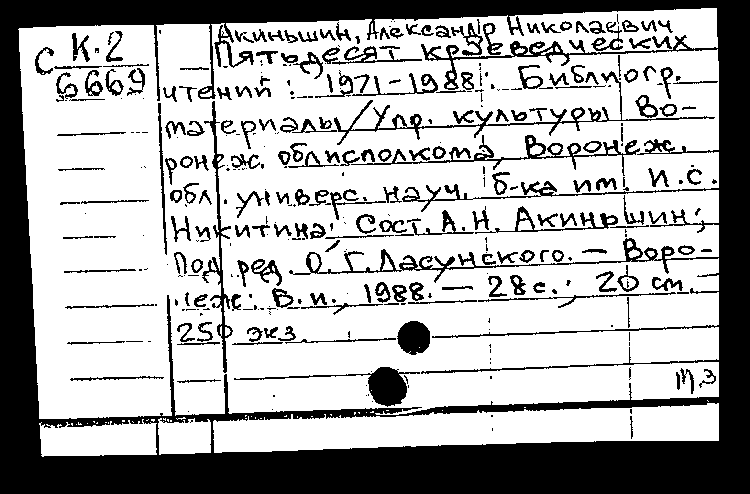 Акиньшин, Александр Николаевич
С К-2
6669
Пятьдесят краеведческих
чтений: 1971-1988: Библиогр.
материалы/Упр. культуры Во-
ронеж. облисполкома, Воронеж.
обл. универс. науч. б-ка им. И.С.
Никитина; Сост. А.Н. Акиньшин;
Под ред. О.Г. Ласунского. — Воро-
неж: Б.и., 1988. — 28 с.; 20 см.
250 экз.
м.з